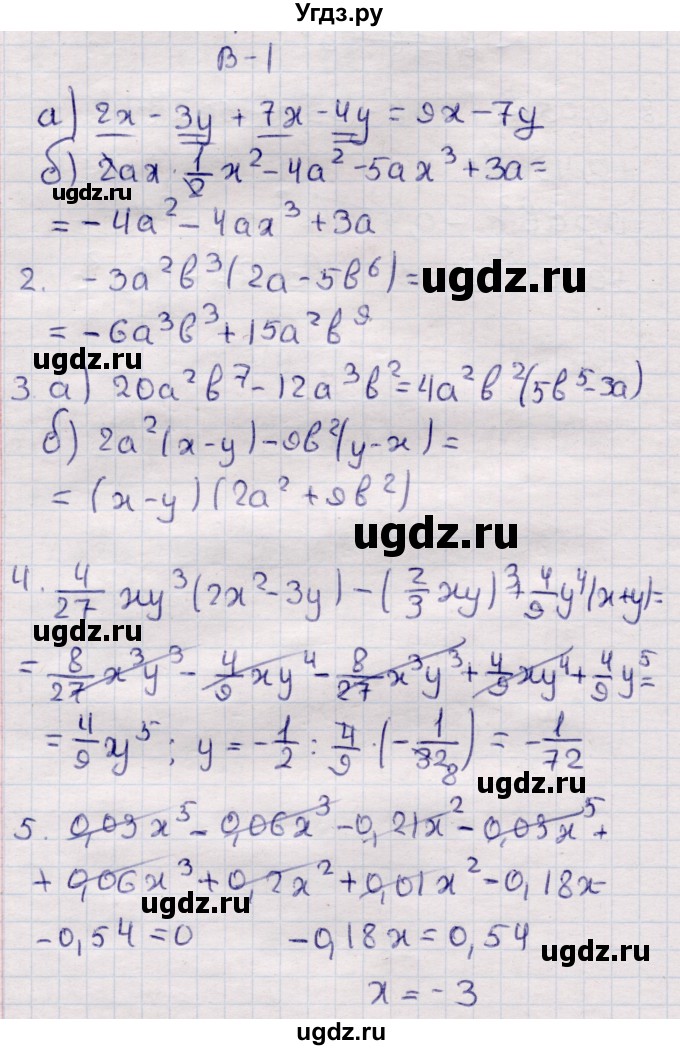 Угдз.ру
В-1
а) 2x - 3y + 7x - 4y = 9x - 7y
б) 2ax · 1/2 x² - 4a² - 5ax³ + 3a =
ugdz.ru
= - 4a² - 4ax³ + 3a
2. - 3a²b³(2a - 5b⁶) =
ugdz.ru
= - 6a³b³ + 15a²b⁹
ugdz.ru
3 а) 20a²b⁷ - 12a³b² = 4a²b²(5b⁵ - 3a)
б) 2a²(x - y) - 9b²(y - x) =
= (x - y)(2a² + 9b²)
ugdz.ru
4. 4/27 xy³(2x² - 3y) - (2/3 xy)³ + 4/9 y⁴(x + y) =
ugdz.ru
= 8/27 x³y³ - 4/9 xy⁴ - 8/27 x³y³ + 4/9 xy⁴ + 4/9 y⁵ =
= 4/9 y⁵ ; y = - 1/2 : 4/9 · (- 1/32 8) = - 1/72
ugdz.ru
5. 0,03x⁵ - 0,06x³ - 0,21x² - 0,03x⁵ +
+ 0,06x³ + 0,2x² + 0,01x² - 0,18x -
ugdz.ru
- 0,54 = 0 - 0,18x = 0,54
ugdz.ru
x = - 3
ugdz.ru